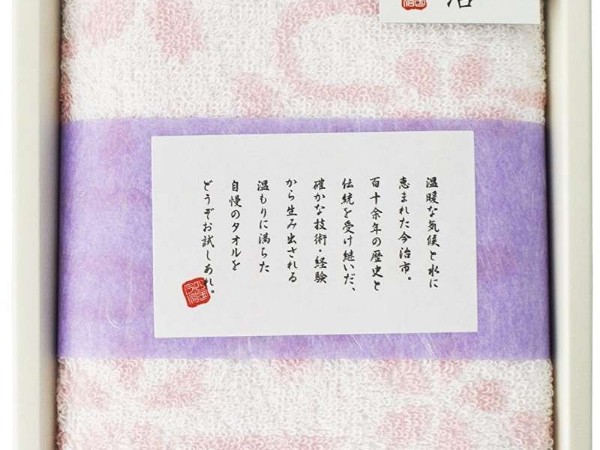 治
温暖な気候と水に
恵まれた今治市。
百十余年の歴史と
伝統を受け継いだ、
確かな技術・経験
から生み出される
温もりに満ちた
自慢のタオルを
どうぞお試しあれ。